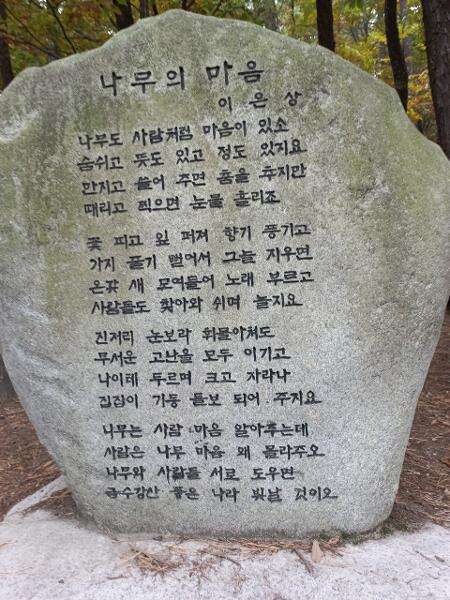 나무의 마음
이 은 상
나무도 사람처럼 마음이 있소
숨쉬고 뜻도 있고 정도 있지요
만지고 쓸어 주면 춤을 추지만
때리고 꺾으면 눈물 흘리죠
꽃 피고 잎 퍼져 향기 풍기고
가지 줄기 뻗어서 그늘 지우면
온갖 새 모여들어 노래 부르고
사람들도 찾아와 쉬며 놀지요
찬서리 눈보라 휘몰아쳐도
무서운 고난을 모두 이기고
나이테 두르며 크고 자라나
집집이 기둥 들보 되어 주지요
나무는 사람 마음 알아주는데
사람은 나무 마음 왜 몰라주오
나무와 사람들 서로 도우면
금수강산 좋은 나라 빛날 것이오